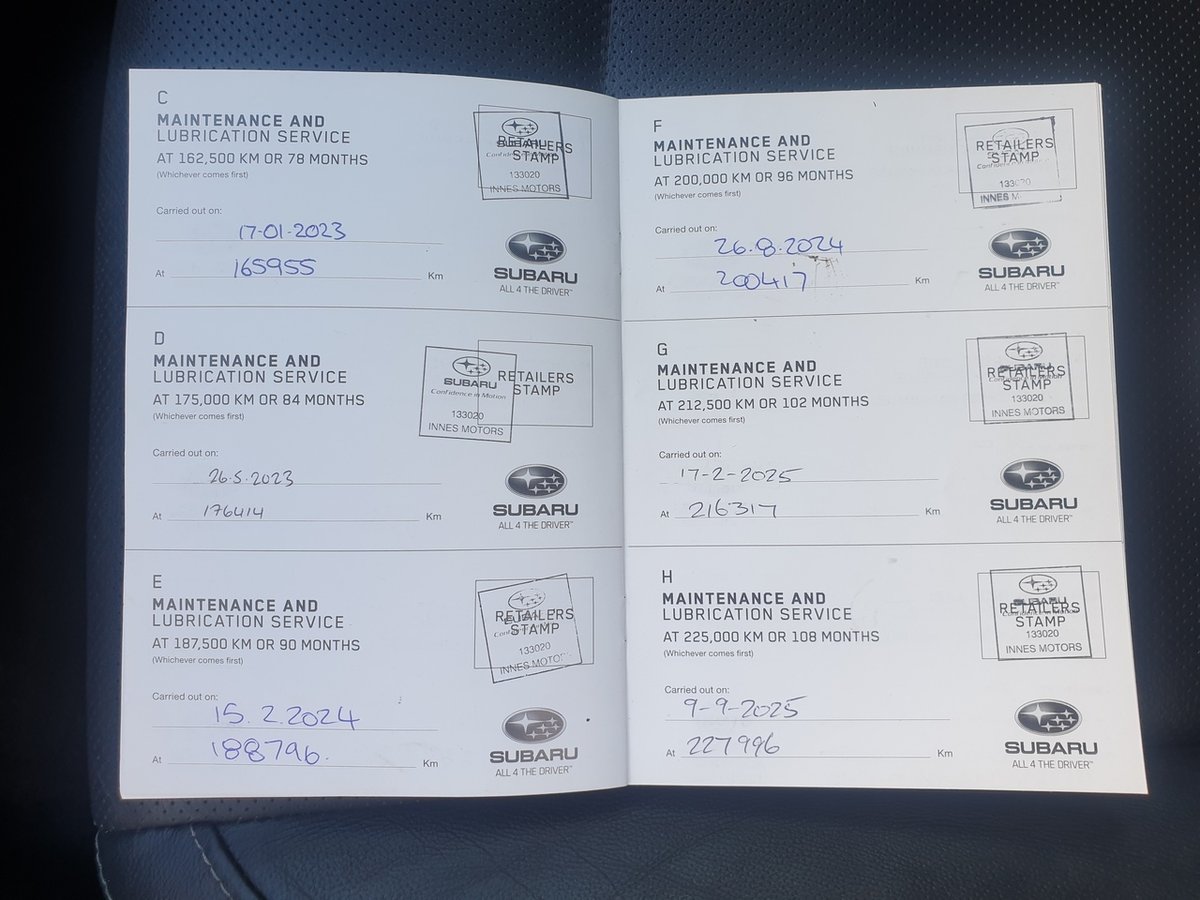 C
MAINTENANCE AND
LUBRICATION SERVICE
AT 162,500 KM OR 78 MONTHS
(Whichever comes first)
RETAILERS
STAMP
133020
INNES MOTORS
Carried out on:
17-01-2023
At 165955 Km
SUBARU
ALL 4 THE DRIVER™
D
MAINTENANCE AND
LUBRICATION SERVICE
AT 175,000 KM OR 84 MONTHS
(Whichever comes first)
RETAILERS
STAMP
SUBARU
Confidence in Motion
133020
INNES MOTORS
Carried out on:
26.5.2023
At 176414 Km
SUBARU
ALL 4 THE DRIVER™
E
MAINTENANCE AND
LUBRICATION SERVICE
AT 187,500 KM OR 90 MONTHS
(Whichever comes first)
RETAILERS
STAMP
133020
INNES MOTO
Carried out on:
15.2.2024
At 188796. Km
SUBARU
ALL 4 THE DRIVER™
F
MAINTENANCE AND
LUBRICATION SERVICE
AT 200,000 KM OR 96 MONTHS
(Whichever comes first)
RETAILERS
STAMP
INNES M
Carried out on:
26.8.2024
At 200417 Km
SUBARU
ALL 4 THE DRIVER™
G
MAINTENANCE AND
LUBRICATION SERVICE
AT 212,500 KM OR 102 MONTHS
(Whichever comes first)
RETAILERS
STAMP
133020
INNES MOTORS
Carried out on:
17-2-2025
At 216317 Km
SUBARU
ALL 4 THE DRIVER™
H
MAINTENANCE AND
LUBRICATION SERVICE
AT 225,000 KM OR 108 MONTHS
(Whichever comes first)
SUBARU
RETAILERS
STAMP
133020
INNES MOTORS
Carried out on:
9-9-2025
At 227996 Km
SUBARU
ALL 4 THE DRIVER™